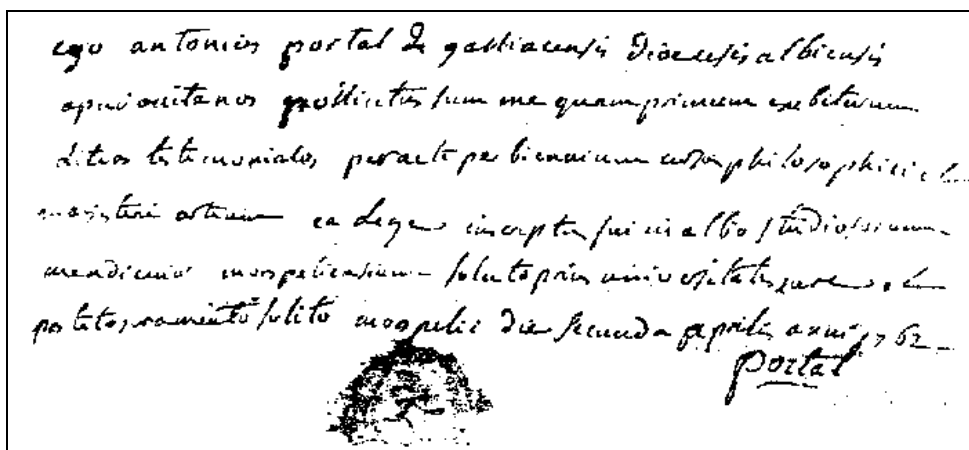 ego antonios portal De galliacensis Diocesis albiensis
apud occitanos pollicitus sum me quam primum exibiturum
literas testimoniales peracti per biennium cursus philosophici et
magisterii artium ea Lege inscriptus fui in albo studiosorum
medicinae monspeliensium soluto prius universitatis jure, et
postito juramento solito monspelii Die secunda aprilis anni 1762
portal